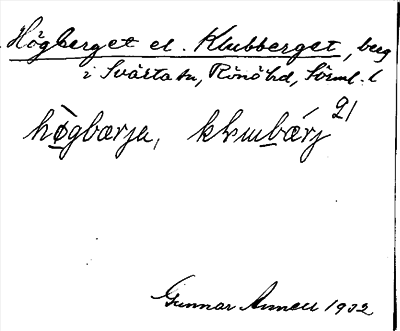 Högberget el. Klubberget, berg
i Svärta sn, Rönö hd, Sörml. l
högbærja, klɯmbærj
21
Gunnar Annell 1932